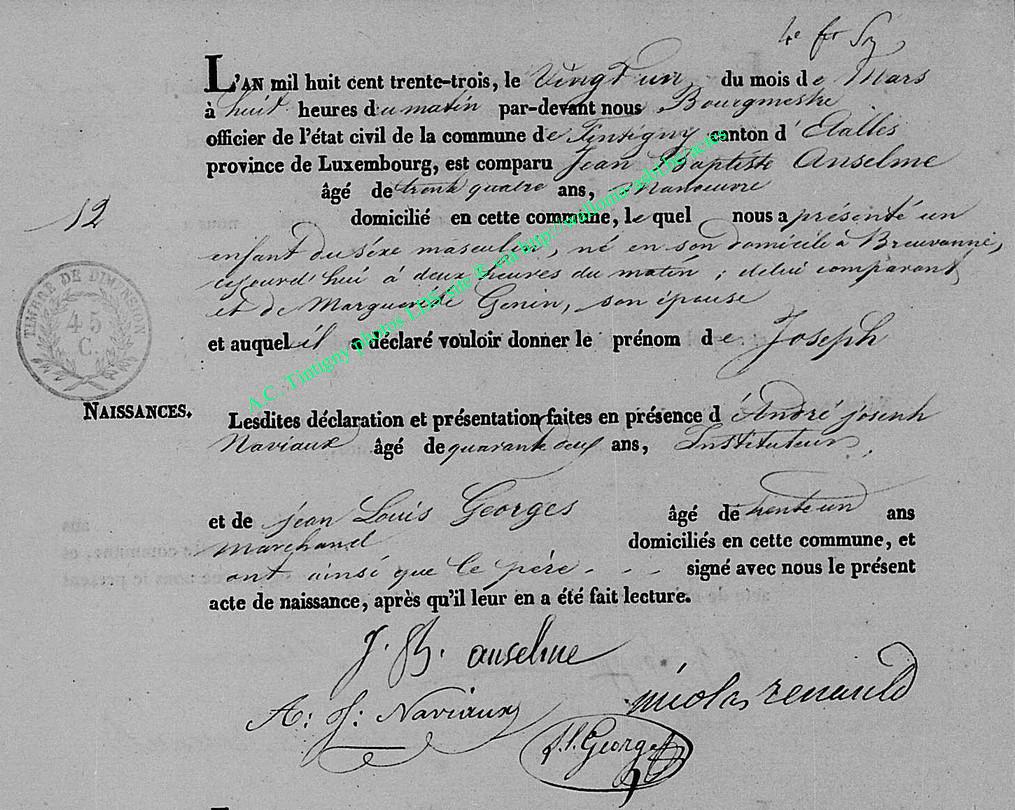 L'AN mil huit cent trente-trois, le Vingt un du mois de Mars
à huit heures du matin par-devant nous Bourgmestre
officier de l'état civil de la commune de Tintigny canton d'Etalles
province de Luxembourg, est comparu Jean Baptiste Anselme
âgé de trente quatre ans, Manoeuvre
12
domicilié en cette commune, le quel nous a présenté un
enfant du séxe masculin, né en son domicile à Breuvanne,
cejourd'hui à deux heures du matin ; de lui comparant
et de Marguerite Genin, son épouse
TIMBRE DE DIMENSION
45
C.
et auquel il a déclaré vouloir donner le prénom de Joseph
A.C. Tintigny photos LDS site & via http://wallonia-asbl.be/actes
NAISSANCES.
Lesdites déclaration et présentation faites en présence d'André joseph
Naviaux âgé de quarante ans, Instituteur
et de jean Louis Georges âgé de trente un ans
marchand domiciliés en cette commune, et
ont ainsi que le père - - - signé avec nous le présent
acte de naissance, après qu'il leur en a été fait lecture.
J. B. anselme
A: J: Naviaux
nicolas renauld
J. l. Georges